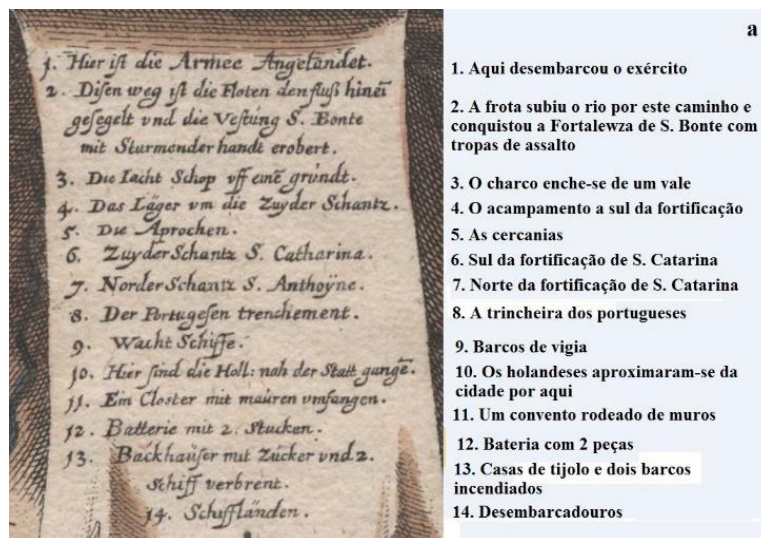 1. Hier ist die Armee Angelandet.
2. Disen weg ist die Floten den fluß hineī
gesegelt vnd die Vestung S. Bonte
mit Sturmender handt erobert.
3. Die Iacht Schop vff einē grundt.
4. Das Läger vm die Zuyder Schantz.
5. Die Aprochen.
6. Zuyder Schantz S. Catharina.
7. Norder Schantz S. Anthoÿne.
8. Der Portugesen trenchement.
9. Wacht Schiffe.
10. Hier sind die Holl: nah der Statt gangē.
11. Ein Closter mit mauren vmfangen.
12. Batterie mit 2. Stucken.
13. Backhaüser mit Zücker vnd 2.
Schiff verbrent.
14. Schiffländen.
a
1. Aqui desembarcou o exército
2. A frota subiu o rio por este caminho e
conquistou a Fortalewza de S. Bonte com
tropas de assalto
3. O charco enche-se de um vale
4. O acampamento a sul da fortificação
5. As cercanias
6. Sul da fortificação de S. Catarina
7. Norte da fortificação de S. Catarina
8. A trincheira dos portugueses
9. Barcos de vigia
10. Os holandeses aproximaram-se da
cidade por aqui
11. Um convento rodeado de muros
12. Bateria com 2 peças
13. Casas de tijolo e dois barcos
incendiados
14. Desembarcadouros